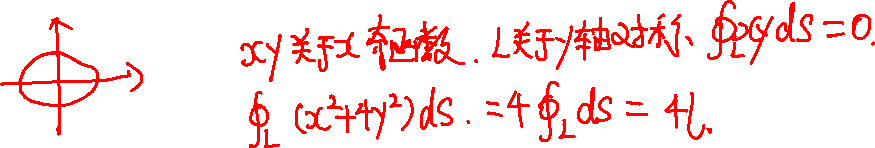 xy关于x奇函数. L关于y轴对称、∮_L xy ds = 0.
∮_L (x²+4y²)ds. = 4∮_L ds = 4l.